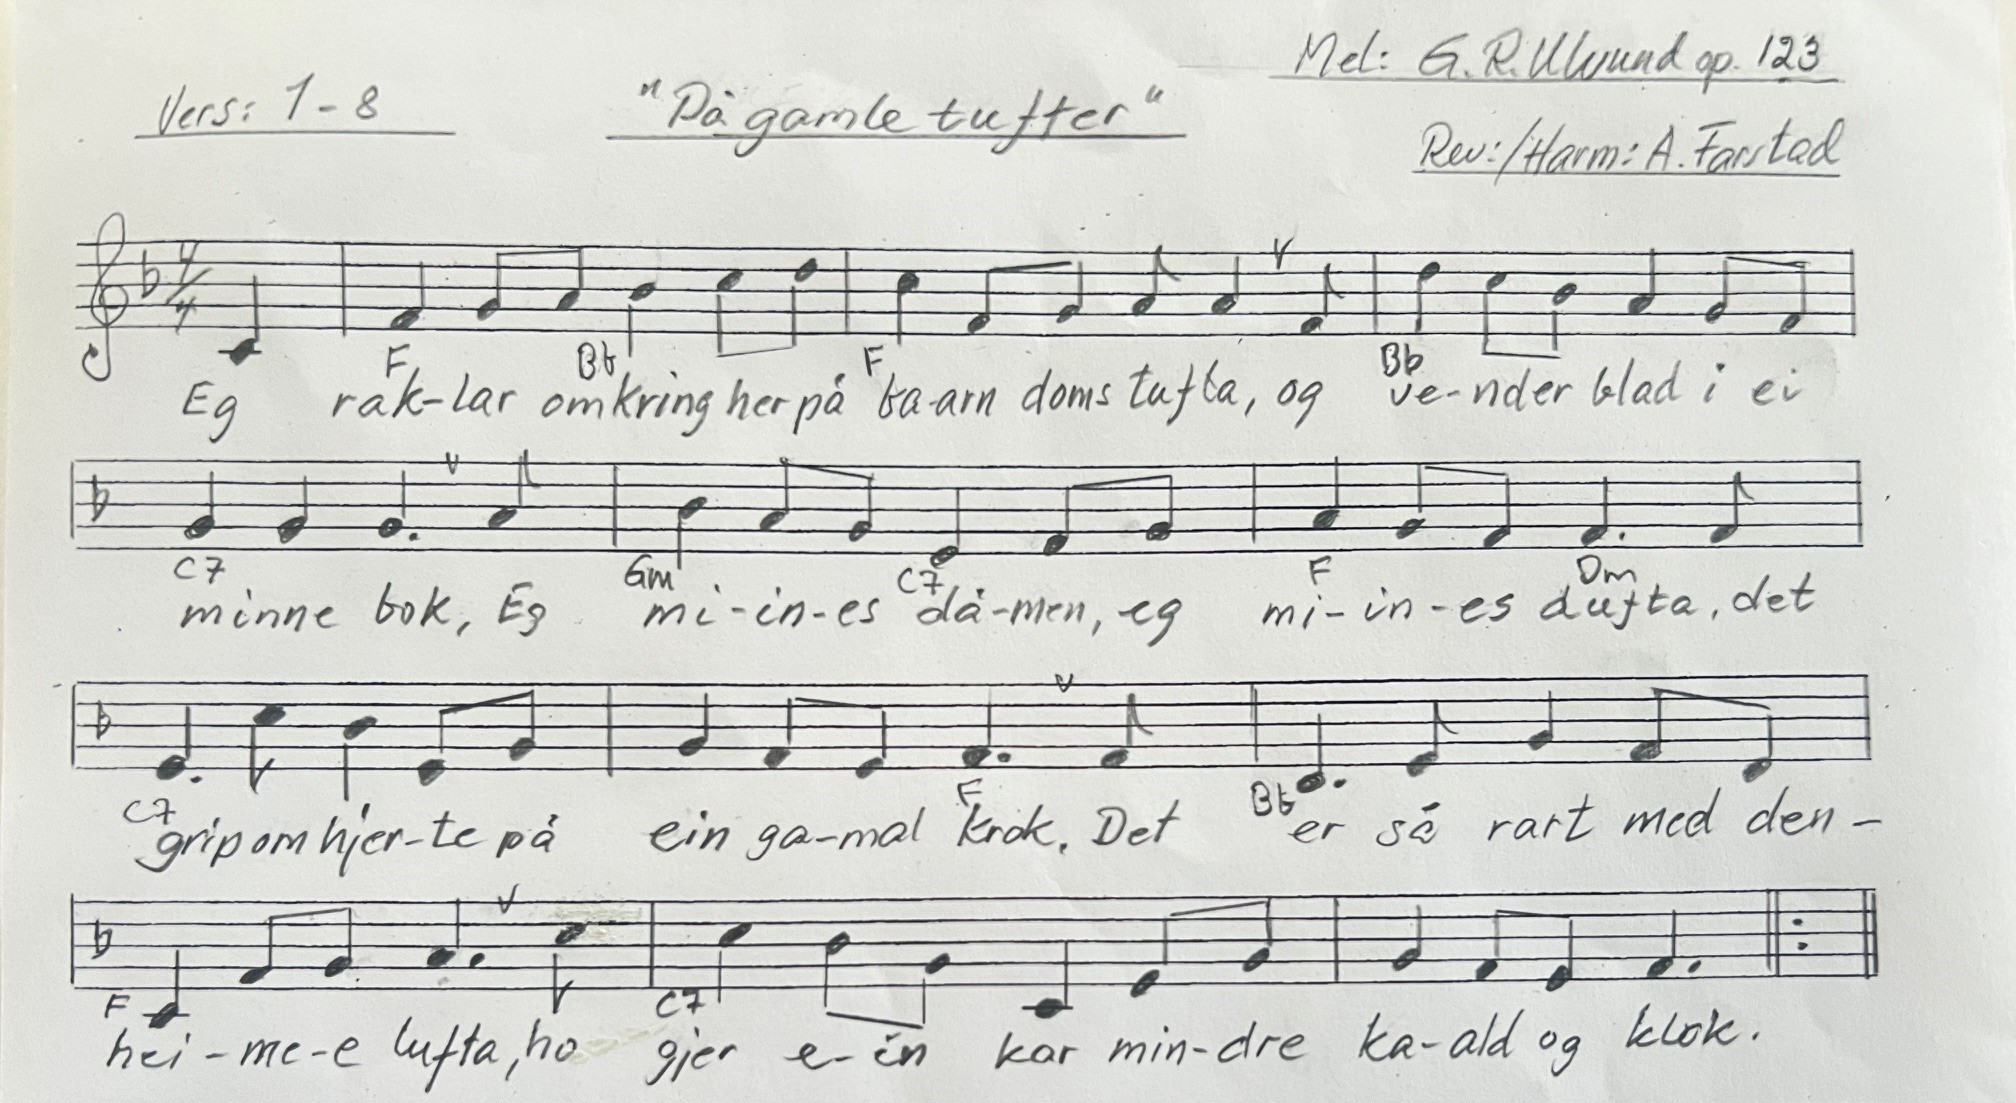 Mel: G.R. Ulvund op. 123
Vers: 1-8 "På gamle tufter"
Rev:/Harm: A. Farstad
4/4
F Bb F Bb
Eg rak-lar omkring her på ba-arn doms tufta, og ve-nder blad i ei
C7 Gm C7 F Dm
minne bok, Eg mi-in-es då-men, eg mi-in-es dufta, det
C7 F Bb
grip om hjer-te på ein ga-mal krok. Det er så rart med den-
F C7
hei-me-e lufta, ho gjer e-in kar min-dre ka-ald og klok.